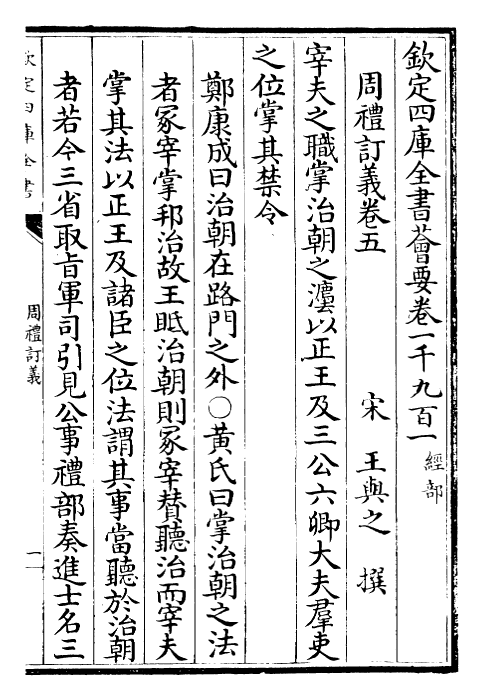 欽定四庫全書薈要卷一千九百一 經部
周禮訂義卷五 宋 王與之 撰
宰夫之職掌治朝之灋以正王及三公六卿大夫羣吏
之位掌其禁令
鄭康成曰治朝在路門之外○黄氏曰掌治朝之法
者冢宰掌邦治故王眡治朝則冢宰賛聽治而宰夫
掌其法以正王及諸臣之位法謂其事當聽於治朝
者若今三省取㫖軍司引見公事禮部奏進士名三
欽定四庫全書
周禮訂義
一